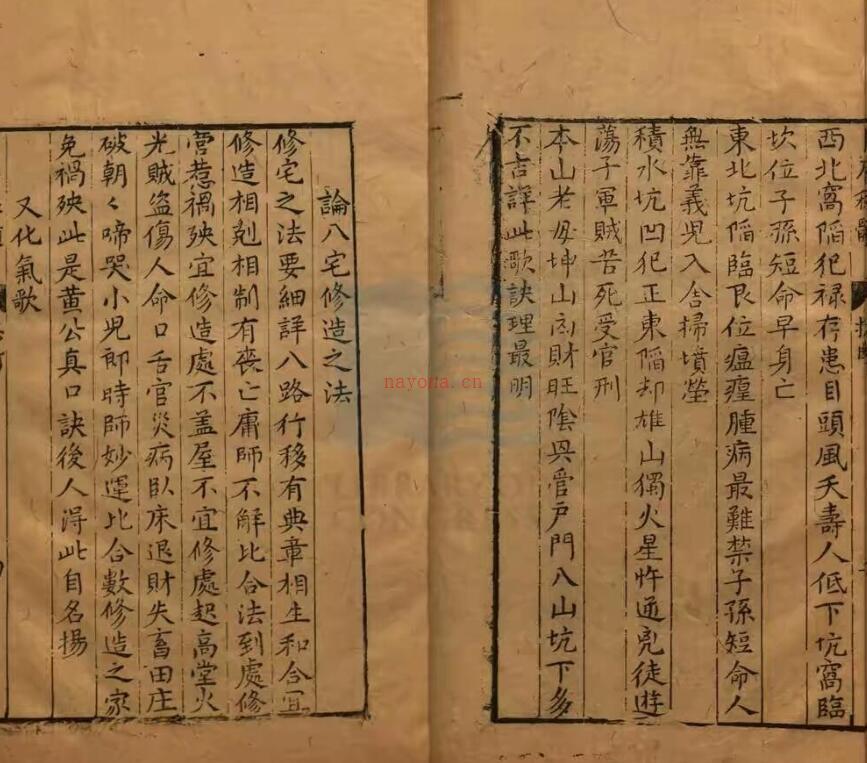 西北窩陷犯禄存患目頭風夭壽人低下坑窩臨
坎位子孫短命早身亡
東北坑陷臨艮位瘟瘟腫病最難禁子孫短命人
無靠義兒入舍掃墳塋
積水坑凹犯正東陷却雄山獨火星忤逆兇徒遊
蕩子軍賊苦死受官刑
本山老母坤山向財旺陰興管戸門八山坑下多
不吉詳此歌訣理最明
論八宅修造之法
修宅之法要細詳八路行移有典章相生和合宜
修造相剋相制有喪亡庸師不解比合法到處修
營惹禍殃宜修造處不盖屋不宜修處起高堂火
光賊盜傷人命口舌官災病臥床退財失畜田庄
破朝々啼哭小兒郎時師妙運比合數修造之家
免禍殃此是黄公真口訣後人得此自名揚
又化氣歌
nayona.cn